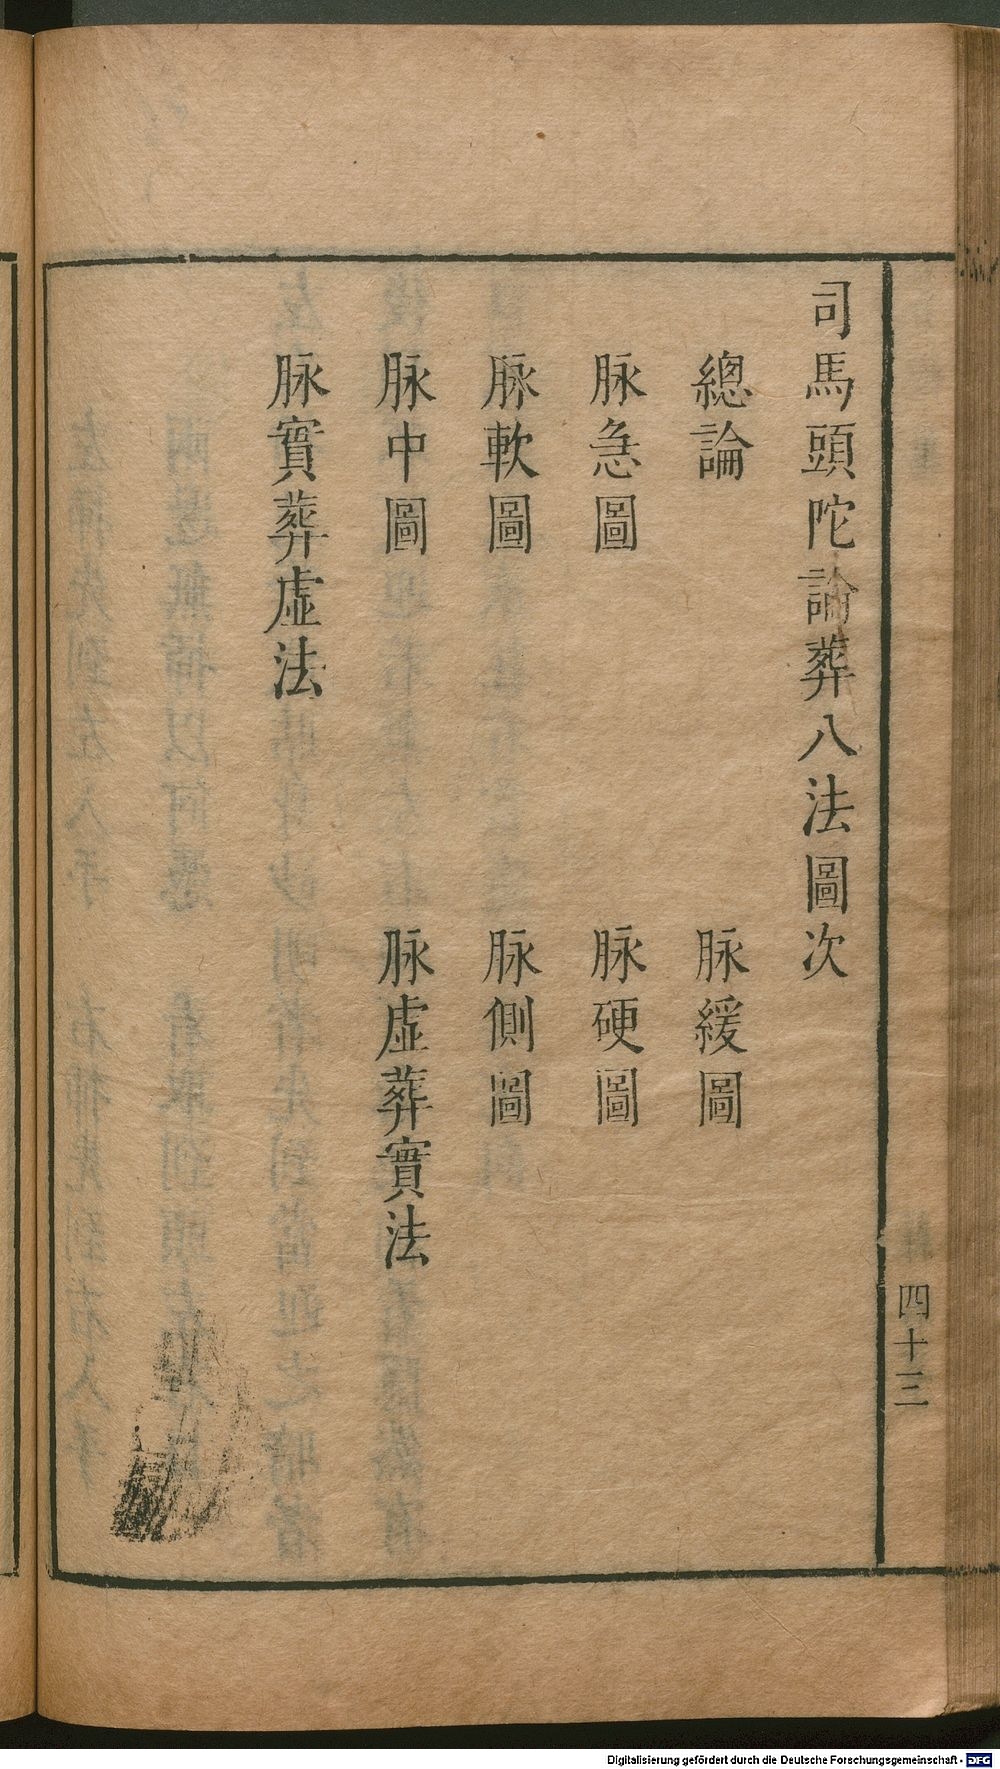 司馬頭陀論葬八法圖次
總論　脉緩圖
脉急圖　脉硬圖
脉軟圖　脉側圖
脉中圖　脉虛葬實法
脉實葬虛法
四十三
Digitalisierung gefördert durch die Deutsche Forschungsgemeinschaft - DFG